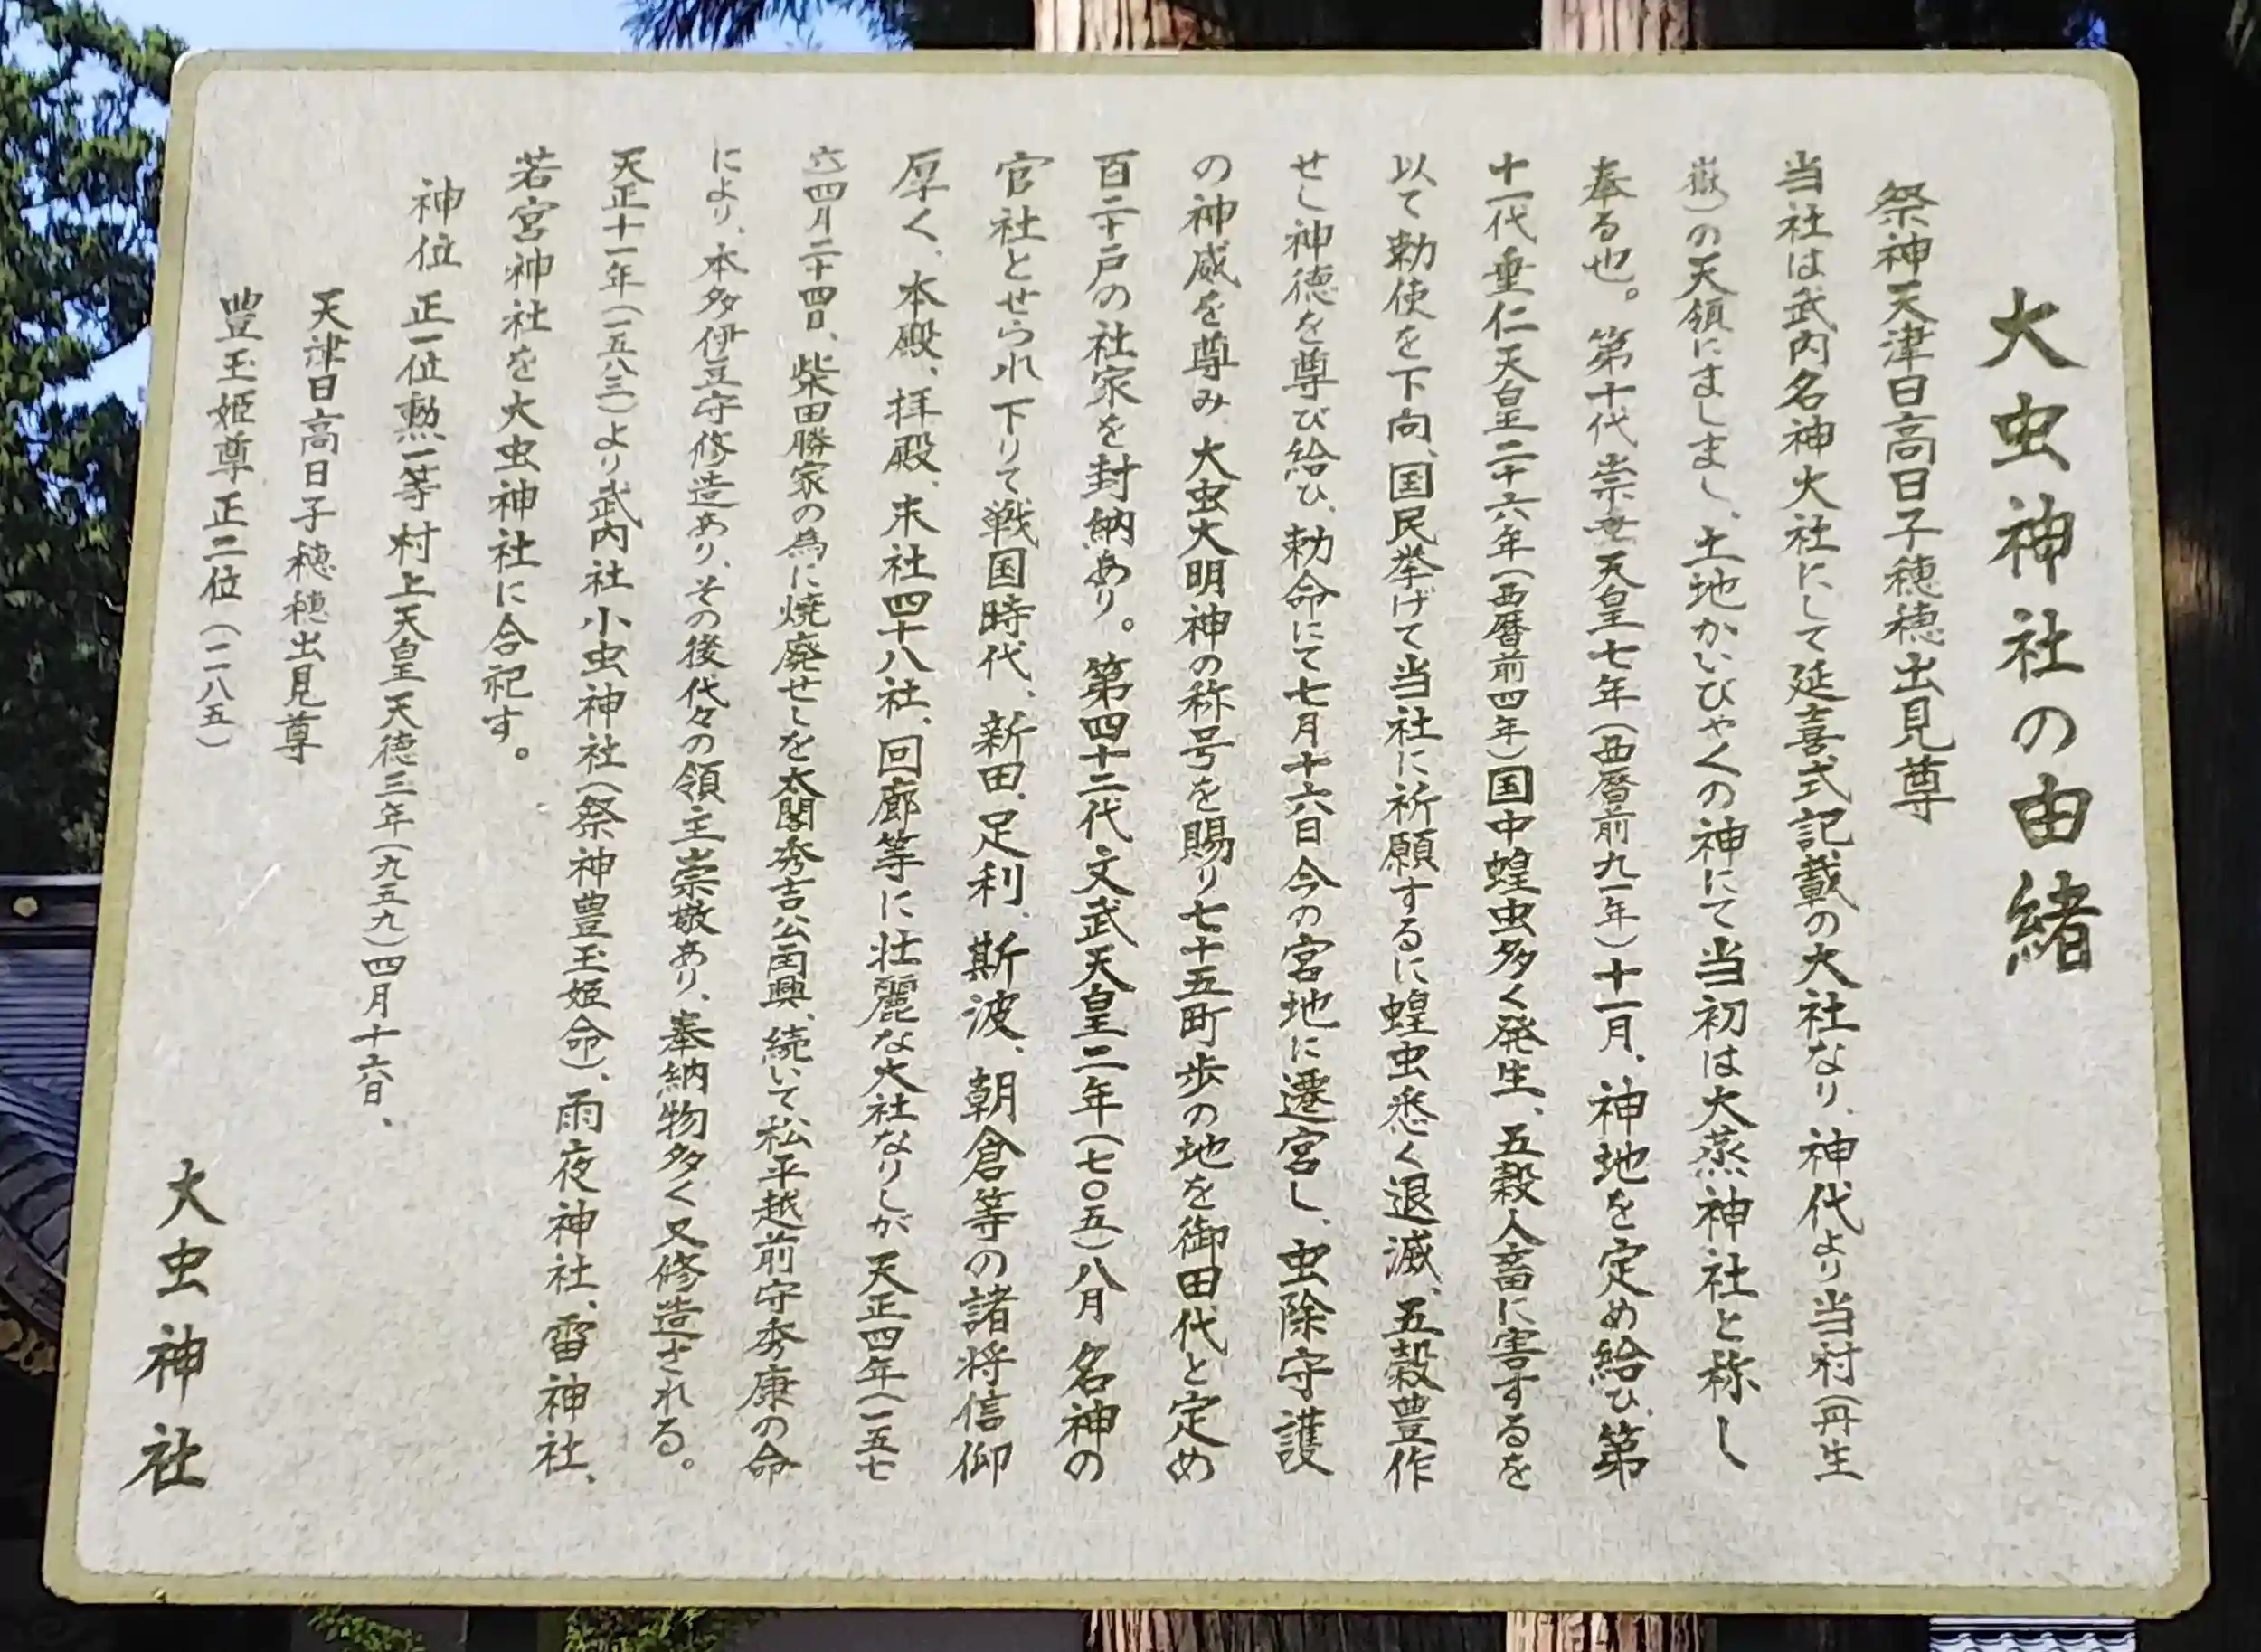 大虫神社の由緒
祭神天津日高日子穂穂出見尊
当社は武内名神大社にして延喜式記載の大社なり、神代より当村(丹生
嶽)の天領にましまし、土地かいびゃくの神にて当初は大蒸神社と称し
奉る也。第十代崇世天皇七年(西暦前九一年)十一月、神地を定め給ひ、第
十一代垂仁天皇二十六年(西暦前四年)国中蝗虫多く発生、五穀人畜に害するを
以て勅使を下向、国民挙げて当社に祈願するに蝗虫悉く退滅、五穀豊作
せし神徳を尊び給ひ、勅命にて七月十六日今の宮地に遷宮し、虫除守護
の神威を尊み大虫大明神の称号を賜り七十五町歩の地を御田代と定め
百二十戸の社家を封納あり。第四十二代文武天皇二年(七〇五)八月名神の
官社とせられ下りて戦国時代、新田、足利、斯波、朝倉等の諸将信仰
厚く、本殿、拝殿、末社四十八社、回廊等に壮麗な大社なりしが天正四年(一五七
六)四月二十四日、柴田勝家の為に焼廃せしを太閤秀吉公再興、続いて松平越前守秀康の命
により、本多伊豆守修造あり、その後代々の領主崇敬あり、奉納物多く又修造される。
天正十一年(一五八三)より武内社小虫神社(祭神豊玉姫命)、雨夜神社、雷神社、
若宮神社を大虫神社に合祀す。
神位 正一位勲一等 村上天皇天徳三年(九五九)四月十六日、
天津日高日子穂穂出見尊
豊玉姫尊 正二位(一二八五)
大虫神社